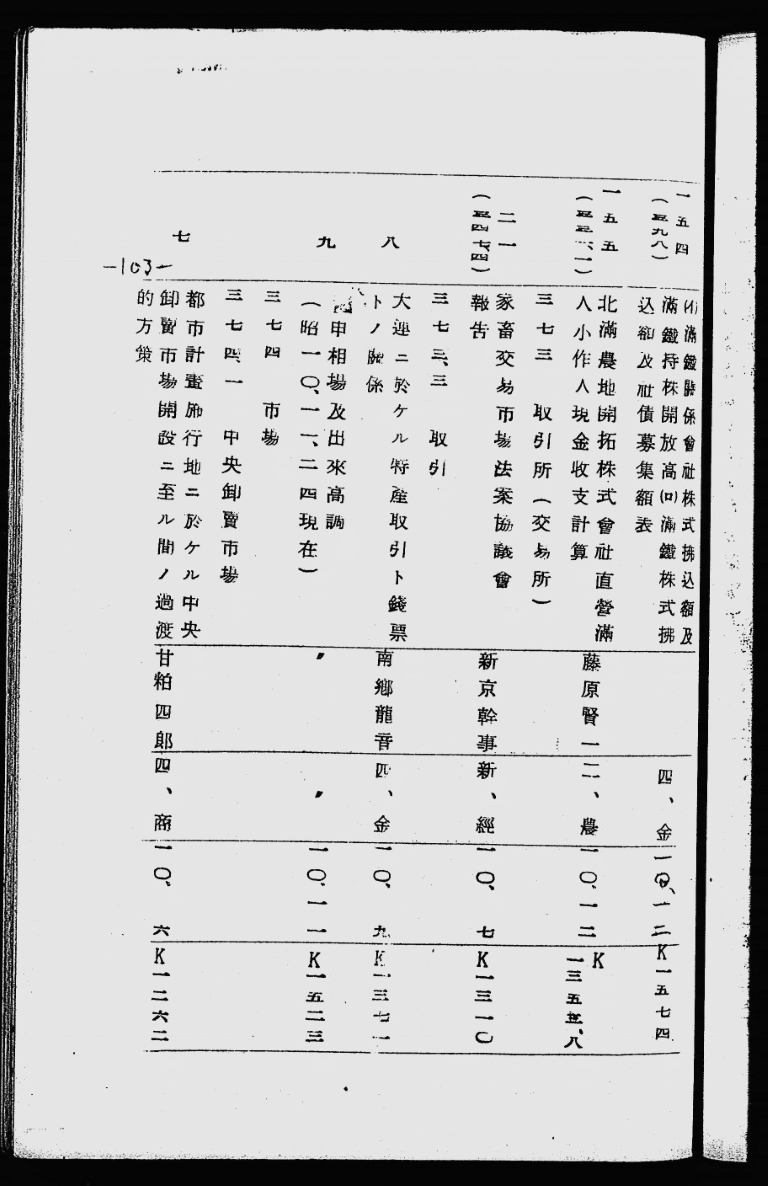 一五四
(イ)滿鐵關係會社株式拂込額及
滿鐵持株開放高(ロ)滿鐵株式拂
込額及社債募集額表
四、金
一〇、一二
K一五七四
一五五
北滿農地開拓株式會社直營滿
人小作人現金收支計算
藤原賢一
二、農
一〇、一二
K
一三五 、八
三七三 取引所(交易所)
二一
家畜交易市場法案協議會
報告
新京幹事
新、經
一〇、七
K一三一〇
三七三、三 取引
八
大連ニ於ケル特産取引ト錢票
トノ關係
南鄉龍音
四、金
一〇、九
K一三七一
九
申相場及出來高調
(昭一〇、一一、二四現在)
〃
〃
一〇、一一
K一五二三
三七四 市場
三七四、一 中央卸賣市場
七
都市計畫施行地ニ於ケル中央
卸賣市場開設ニ至ル間ノ過渡
的方策
甘粕四郎
四、商
一〇、六
K一二六二
-103-